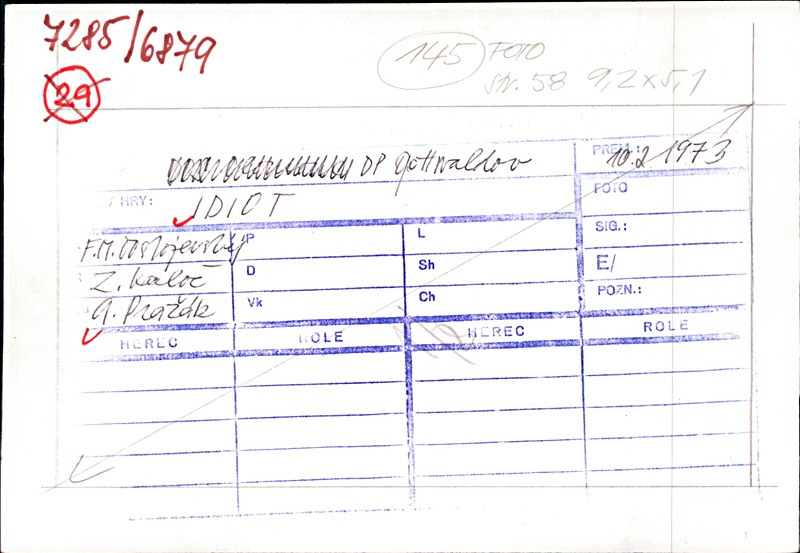 7285/6879
29
145 FOTO
str. 58 9,2x5,1
DP Gottwaldov
PREM.: 10.2.1973
/ HRY: IDIOT
FOTO
F.M. Dostojevskij
/P
L
SIG.:
Z. Kaloč
D
Sh
E/
A. Pražák
Vk
Ch
POZN.:
HEREC ROLE HEREC ROLE